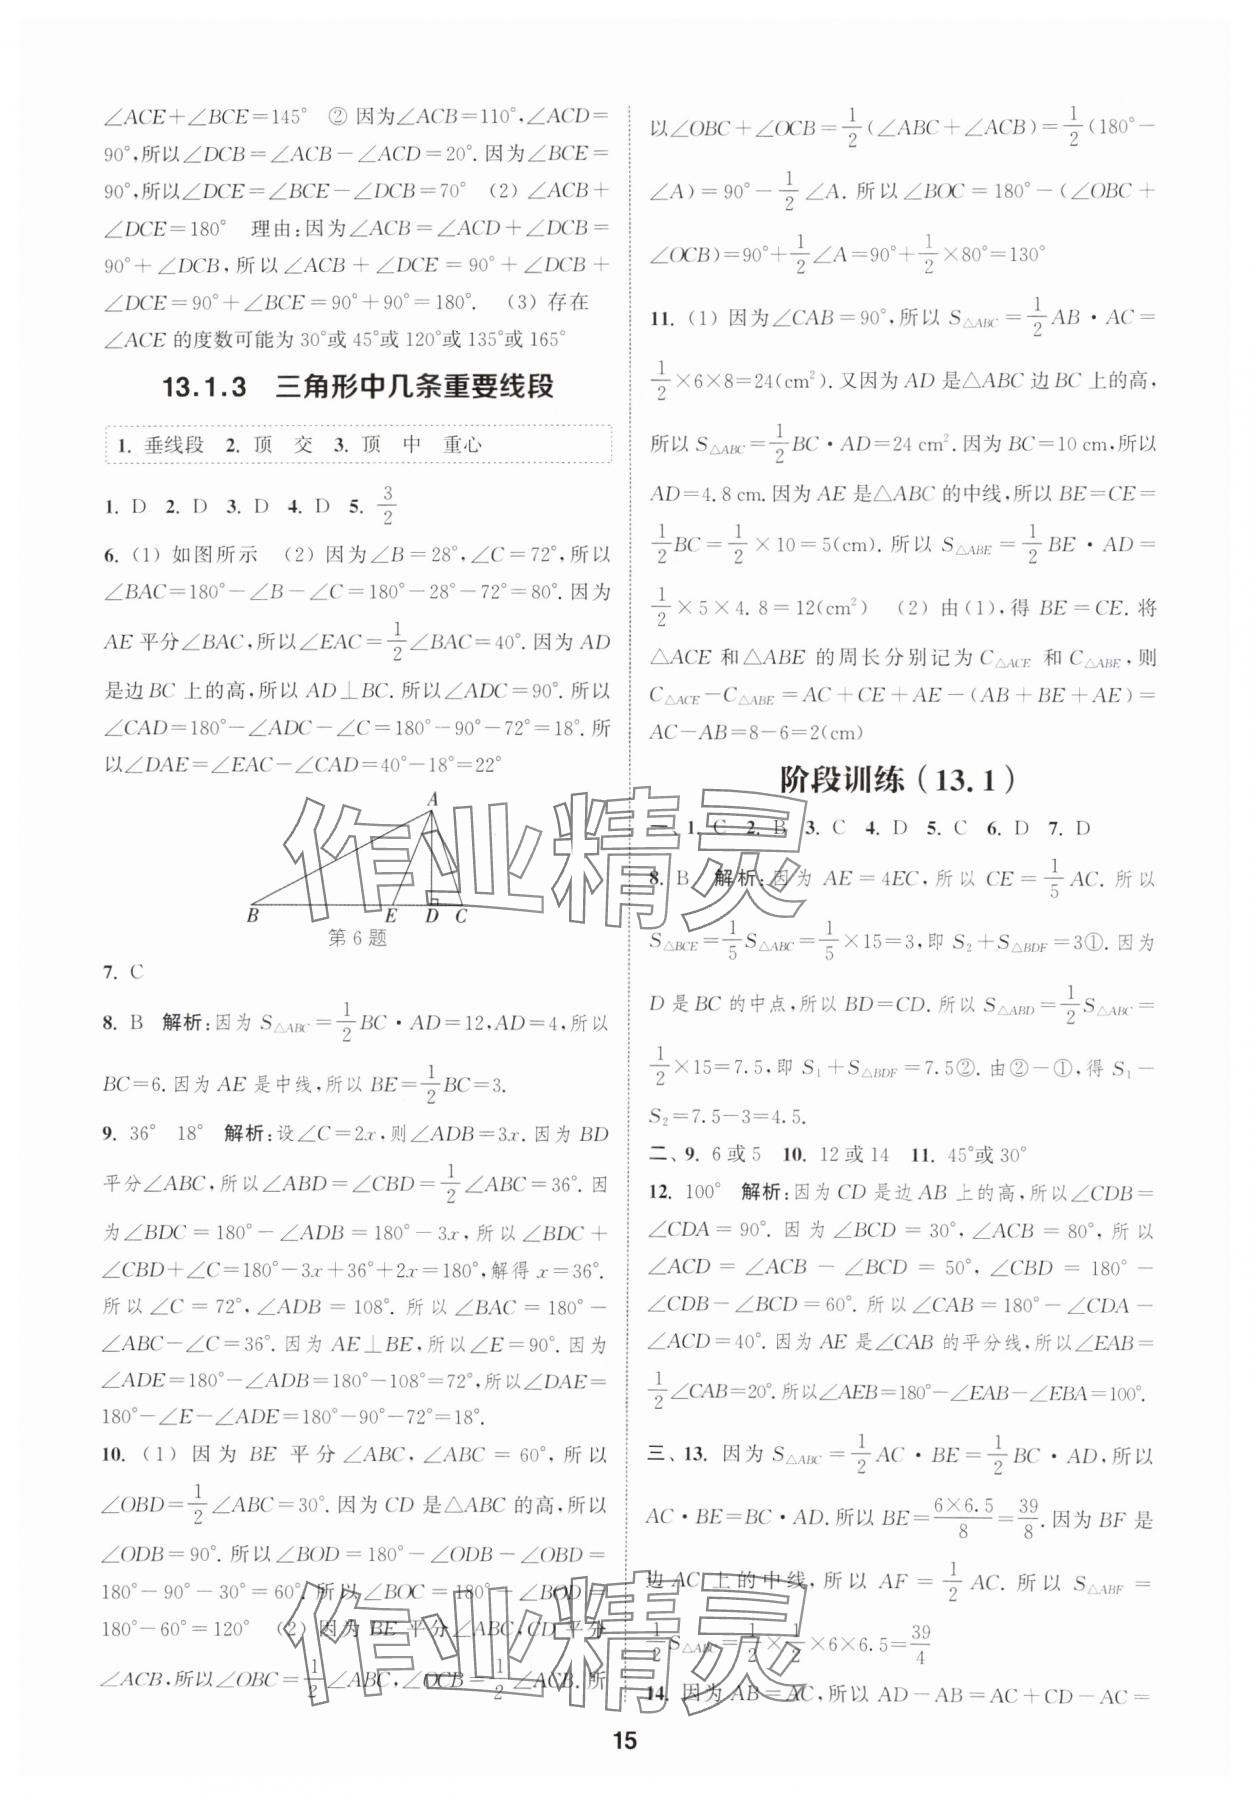 ∠ACE+∠BCE=145° ② 因为∠ACB=110°,∠ACD=
90°,所以∠DCB=∠ACB-∠ACD=20°. 因为∠BCE=
90°,所以∠DCE=∠BCE-∠DCB=70° (2) ∠ACB+
∠DCE=180° 理由:因为∠ACB=∠ACD+∠DCB=
90°+∠DCB,所以∠ACB+∠DCE=90°+∠DCB+
∠DCE=90°+∠BCE=90°+90°=180°. (3) 存在
∠ACE 的度数可能为 30°或 45°或 120°或 135°或 165°
13.1.3 三角形中几条重要线段
1. 垂线段 2. 顶 交 3. 顶 中 重心
1. D 2. D 3. D 4. D 5. 3/2
6. (1) 如图所示 (2) 因为∠B=28°,∠C=72°,所以
∠BAC=180°-∠B-∠C=180°-28°-72°=80°. 因为
AE 平分∠BAC,所以∠EAC=1/2∠BAC=40°. 因为 AD
是边 BC 上的高,所以 AD⊥BC. 所以∠ADC=90°. 所以
∠CAD=180°-∠ADC-∠C=180°-90°-72°=18°. 所
以∠DAE=∠EAC-∠CAD=40°-18°=22°
A
B E D C
第 6 题
7. C
8. B 解析:因为 S△ABC=1/2BC·AD=12,AD=4,所以
BC=6. 因为 AE 是中线,所以 BE=1/2BC=3.
9. 36° 18° 解析:设∠C=2x,则∠ADB=3x. 因为 BD
平分∠ABC,所以∠ABD=∠CBD=1/2∠ABC=36°. 因
为∠BDC=180°-∠ADB=180°-3x,所以∠BDC+
∠CBD+∠C=180°-3x+36°+2x=180°,解得 x=36°.
所以∠C=72°,∠ADB=108°. 所以∠BAC=180°-
∠ABC-∠C=36°. 因为 AE⊥BE,所以∠E=90°. 因为
∠ADE=180°-∠ADB=180°-108°=72°,所以∠DAE=
180°-∠E-∠ADE=180°-90°-72°=18°.
10. (1) 因为 BE 平分∠ABC,∠ABC=60°,所以
∠OBD=1/2∠ABC=30°. 因为 CD 是△ABC 的高,所以
∠ODB=90°. 所以∠BOD=180°-∠ODB-∠OBD=
180°-90°-30°=60°. 所以∠BOC=180°-∠BOD=
180°-60°=120° (2) 因为 BE 平分∠ABC,CD 平分
∠ACB,所以∠OBC=1/2∠ABC,∠OCB=1/2∠ACB. 所
以∠OBC+∠OCB=1/2(∠ABC+∠ACB)=1/2(180°-
∠A)=90°-1/2∠A. 所以∠BOC=180°-(∠OBC+
∠OCB)=90°+1/2∠A=90°+1/2×80°=130°
11. (1) 因为∠CAB=90°,所以 S△ABC=1/2AB·AC=
1/2×6×8=24(cm²). 又因为 AD 是△ABC 边 BC 上的高,
所以 S△ABC=1/2BC·AD=24 cm². 因为 BC=10 cm,所以
AD=4.8 cm. 因为 AE 是△ABC 的中线,所以 BE=CE=
1/2BC=1/2×10=5(cm). 所以 S△ABE=1/2BE·AD=
1/2×5×4.8=12(cm²) (2) 由(1),得 BE=CE. 将
△ACE 和△ABE 的周长分别记为 C△ACE 和 C△ABE,则
C△ACE-C△ABE=AC+CE+AE-(AB+BE+AE)=
AC-AB=8-6=2(cm)
阶段训练(13.1)
一、1. C 2. B 3. C 4. D 5. C 6. D 7. D
8. B 解析:因为 AE=4EC,所以 CE=1/5AC. 所以
S△BCE=1/5S△ABC=1/5×15=3,即 S₂+S△BDF=3①. 因为
D 是 BC 的中点,所以 BD=CD. 所以 S△ABD=1/2S△ABC=
1/2×15=7.5,即 S₁+S△BDF=7.5②. 由②-①,得 S₁-
S₂=7.5-3=4.5.
二、9. 6 或 5 10. 12 或 14 11. 45°或 30°
12. 100° 解析:因为 CD 是边 AB 上的高,所以∠CDB=
∠CDA=90°. 因为∠BCD=30°,∠ACB=80°,所以
∠ACD=∠ACB-∠BCD=50°,∠CBD=180°-
∠CDB-∠BCD=60°. 所以∠CAB=180°-∠CDA-
∠ACD=40°. 因为 AE 是∠CAB 的平分线,所以∠EAB=
1/2∠CAB=20°. 所以∠AEB=180°-∠EAB-∠EBA=100°.
三、13. 因为 S△ABC=1/2AC·BE=1/2BC·AD,所以
AC·BE=BC·AD. 所以 BE=6×6.5/8=39/8. 因为 BF 是
边 AC 上的中线,所以 AF=1/2AC. 所以 S△ABF=
1/2S△ABC=1/2×1/2×6×6.5=39/4
14. 因为 AB=AC,所以 AD-AB=AC+CD-AC=
15
作业精灵
作业精灵